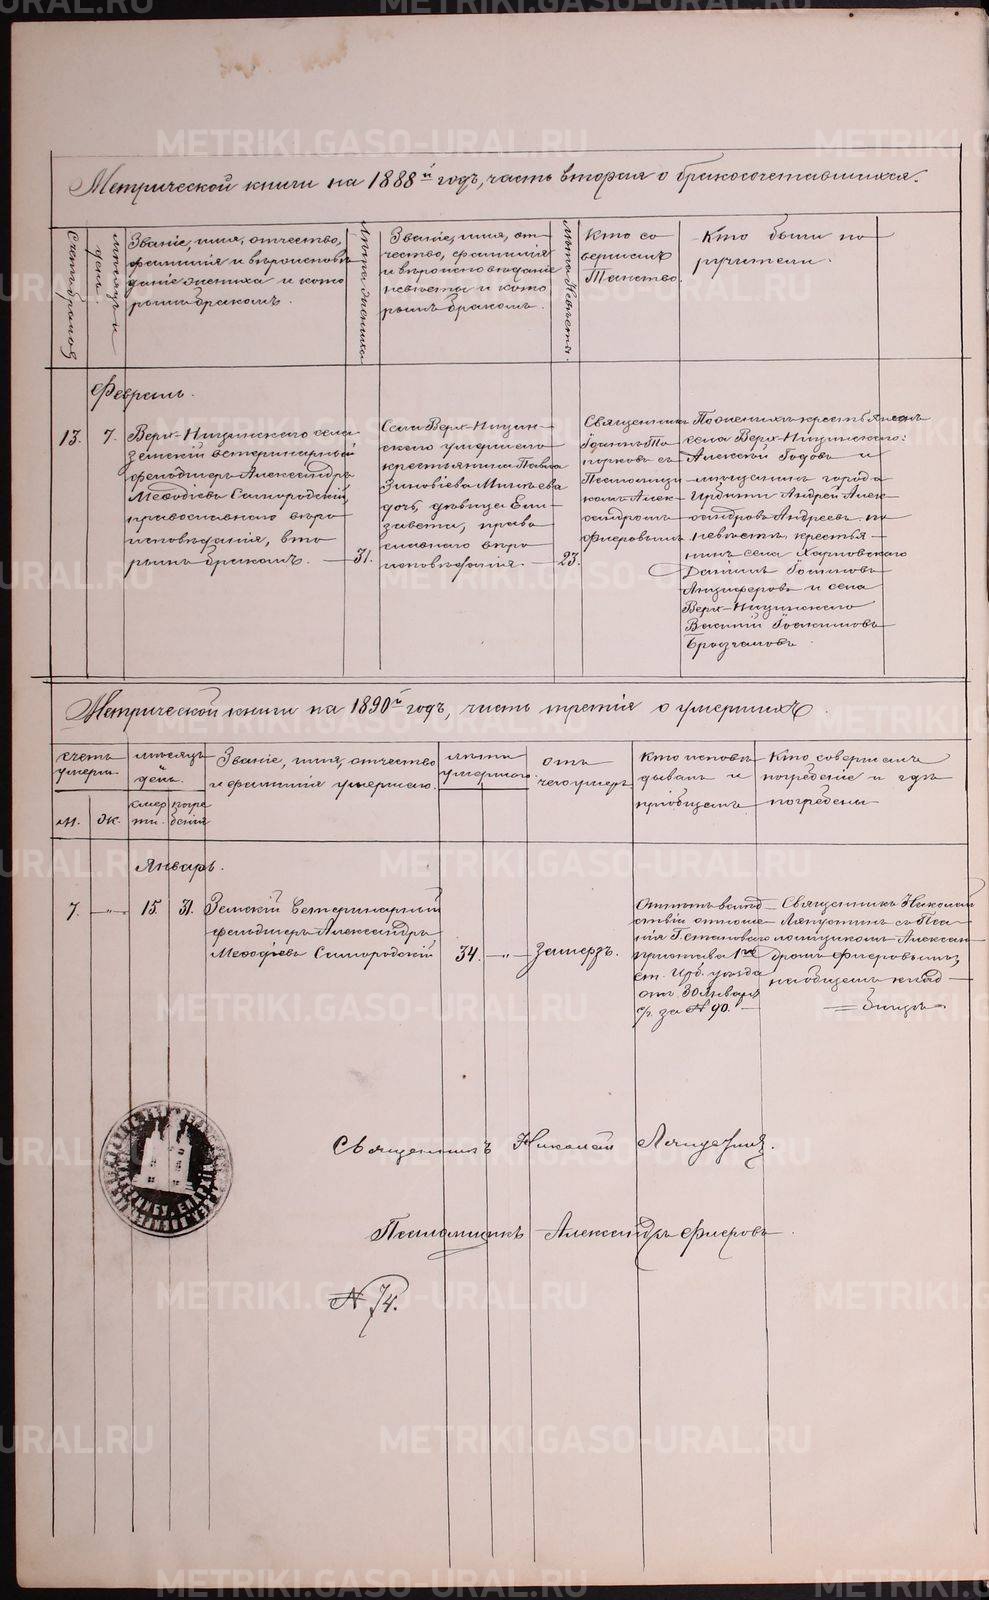 Метрической книги на 1888й годъ, часть вторая о бракосочетавшихся.
Счетъ браковъ
мѣсяцъ и день
Званіе, имя, отчество,
фамилія и вѣроисповѣ
даніе жениха и кото
рымъ бракомъ.
Лѣта жениха
Званіе, имя, от
чество, фамилія
и вѣроисповѣданіе
невѣсты и кото
рымъ бракомъ.
Лѣта невѣсты.
Кто со
вершалъ
Таинство.
Кто были по
ручители.
Февраль.
13. 7.
Верх-Ницинскаго села
земскій ветеринарный
фельдшеръ Александръ
Меѳодіевъ Самородскій,
православнаго вѣро
исповѣданія, вто
рымъ бракомъ. — 31.
Села Верх-Ницин-
скаго умершаго
крестьянина Павла
Зиновіева
дочь, дѣвица Ели
завета, право
славнаго вѣро
исповѣданія. — 23.
Священникъ
Іоаннъ То
порковъ съ
Псаломщи
комъ Алек-
сандромъ
Флеровымъ
По женихѣ: крестьянинъ
села Верх-Ницинскаго:
Алексѣй Годовъ и
мѣщанинъ города
Ирбити Андрей Алек-
сандровъ Андреевъ. по
невѣстѣ, крестья-
нинъ села Харловскаго
Даніилъ
Анциферовъ и села
Верх-Ницинскаго
Василій Іоакимовъ
Метрической книги на 1890й годъ, часть третія о умершихъ.
счетъ
умерш.
мѣсяцъ
день.
Званіе, имя, отчество
и фамилія умершаго.
лѣта
умершаго.
отъ
чего умеръ
Кто исповѣ
дывалъ и
пріобщалъ
Кто совершалъ
погребеніе и гдѣ
погребены
м. ж.
смер
ти.
погре
бенія
Январь.
7. —„— 15. 31.
Земскій Ветеринарный
фельдшеръ Александръ
Меѳодіевъ Самородскій
34. —„—
Замерзъ.
ствіи отноше
нія Г. Становаго
пристава 1го
ст. Ирб. уѣзда
отъ 30 Января
с/г. за № 90. —
Священникъ Николай
Ляпустинъ съ Пса-
ломщикомъ Алексан-
дромъ Флеровымъ,
на общемъ клад-
бищѣ
Священникъ Николай Ляпустинъ.
Псаломщикъ Александръ Флеровъ.
№ 74.
METRIKI.GASO-URAL.RU